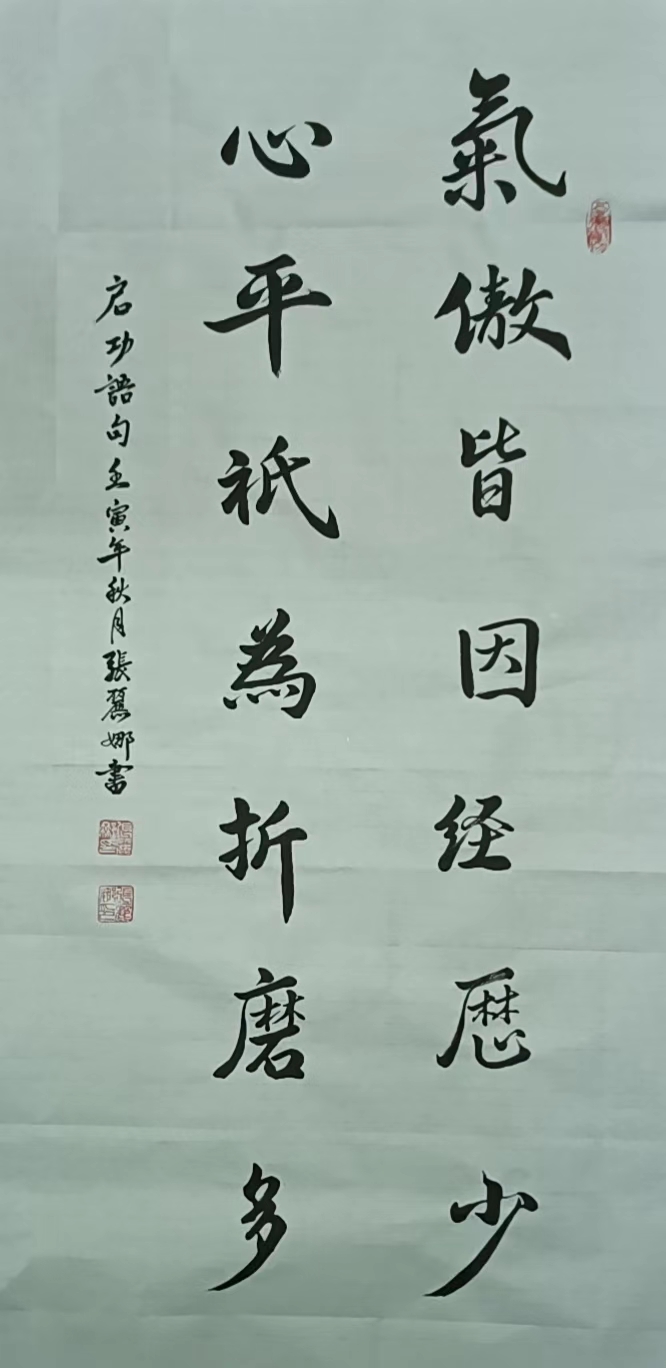 氣傲皆因经歴少
心平祇為折磨多
启功語句壬寅年秋月張麗娜書